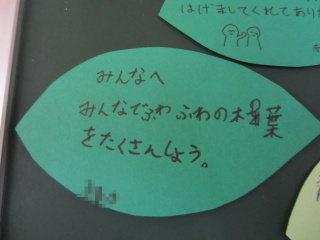 はげましてくれてあり
みんなへ
みんなでふわふわの木葉
をたくさんしよう。